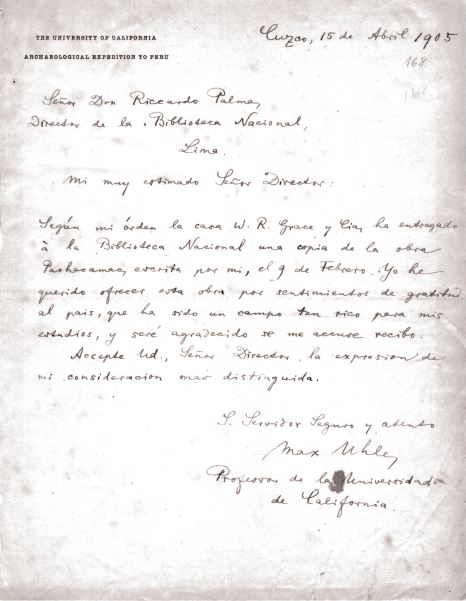 THE UNIVERSITY OF CALIFORNIA
ARCHAEOLOGICAL EXPEDITION TO PERU
Cuzco, 15 de Abril 1905
168
Señor Don Riccardo Palma,
Director de la Biblioteca Nacional,
Lima.
Mi muy estimado Señor Director:
Según mi órden la casa W. R. Grace y Cia, ha entregado
à la Biblioteca Nacional una copia de la obra
Pachacamac, escrita por mi, el 9 de Febrero. Yo he
querido ofrecer esta obra por sentimientos de gratitud
al pais, que ha sido un campo tan rico para mis
estudios, y seré agradecido se me accuse recibo.
Accepte Ud., Señor Director, la expresion de
mi consideracion mas distinguida.
S. Servidor Seguro y atento
Max Uhle,
Professor de la Universidad
de California.